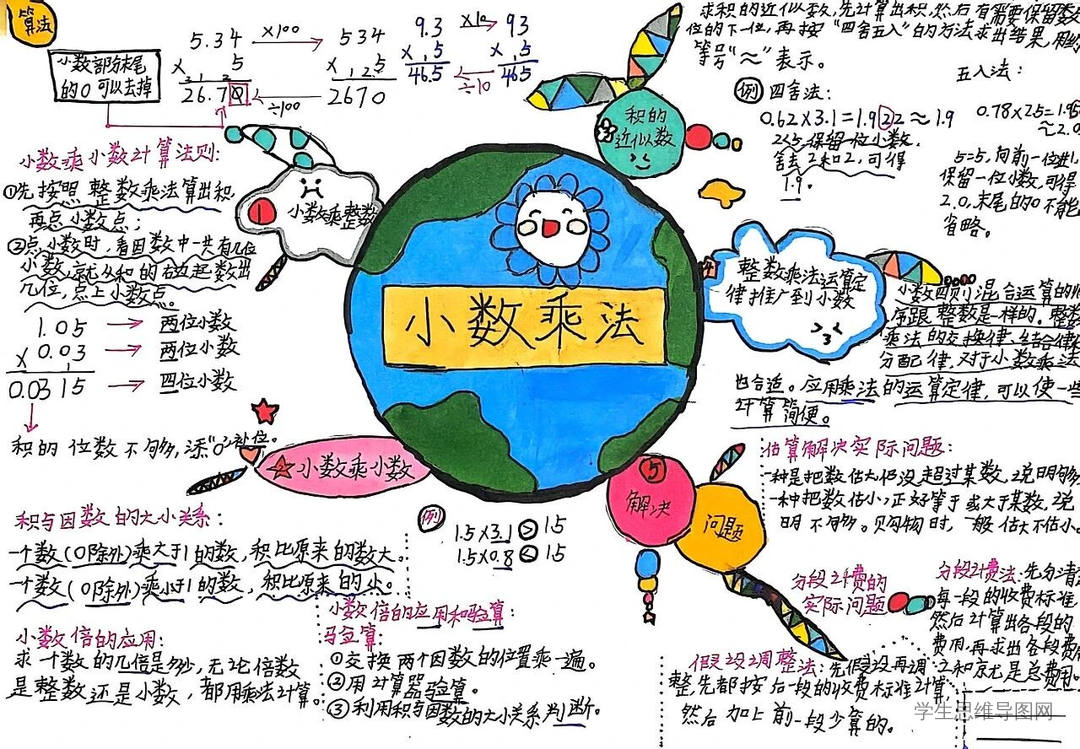 算法
小数部分末尾
的0可以去掉
5.34 ×100 534
× 5 × 125
26.70 ÷100 2670
9.3 ×10 93
×.5 ×.5
46.5 ÷10 465
小数乘小数计算法则:
①先按照整数乘法算出积
再点小数点;
②点小数时,看因数中一共有几位
小数,就从积的右边起数出
几位,点上小数点。
1.05 → 两位小数
× 0.03 → 两位小数
0.0315 → 四位小数
积的位数不够,添"0"补位。
小数乘整数
小数乘小数
小数乘法
积的
近似数
求积的近似数,先计算出积,然后看需要保留数
位的下一位,再按"四舍五入"的方法求出结果,用约
等号"≈"表示。
例 四舍法:
0.62×3.1=1.922≈1.9
2<5,保留一位小数,
舍去2和2,可得
1.9。
五入法:
0.78×2.5=1.95
≈2.0
5=5,向前一位进1,
保留一位小数,可得
2.0,末尾的0不能
省略。
4
整数乘法运算定
律推广到小数
小数四则混合运算的顺
序跟整数是一样的。整数
乘法的交换律、结合律和
分配律,对于小数乘法
也合适。应用乘法的运算定律,可以使一些
计算简便。
5
解决
问题
估算解决实际问题:
一种是把数估大仍没超过某数,说明够
一种把数估小,正好等于或大于某数,说
明不够。购物时,一般估大不估小
分段计费的
实际问题
分段计费法:先分清
每一段的收费标准,
然后计算出各段的
费用,再求出各段费用
之和就是总费用。
假设调整法:先假设再调
整,先都按后一段的收费标准计算,
然后加上前一段少算的。
积与因数的大小关系:
一个数(0除外)乘大于1的数,积比原来的数大。
一个数(0除外)乘小于1的数,积比原来的小。
例
1.5×3.1 > 1.5
1.5×0.8 < 1.5
小数倍的应用:
求一个数的几倍是多少,无论倍数
是整数还是小数,都用乘法计算。
小数倍的应用和验算:
验算:
①交换两个因数的位置乘一遍。
②用计算器验算。
③利用积与因数的大小关系判断。
学生思维导图网